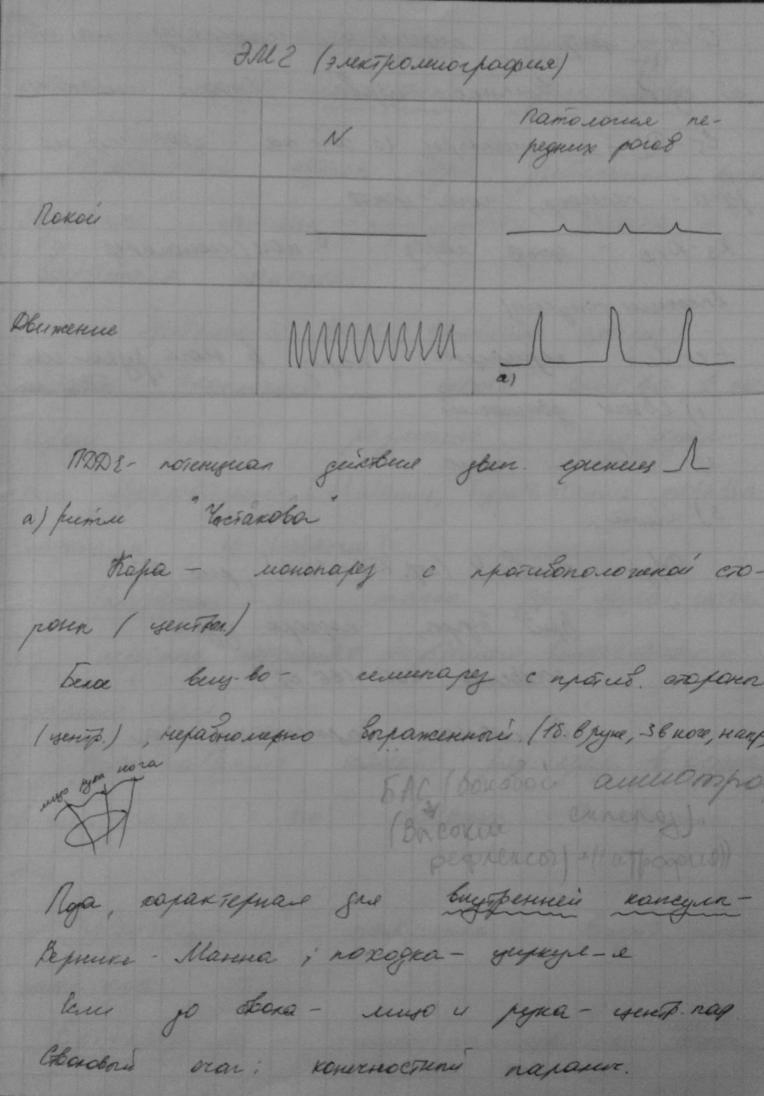 ЭМГ (электромиография)
N
Патология пе-
редних рогов
Покой
Движение
а)
ПДДЕ - потенциал действия двиг. единиц
а) ритм "Частокола"
Кора - монопарез с противоположной сто-
роны (центр.)
Белое вещ-во - гемипарез с против. стороны
(центр.), неравномерно выраженный (1б. в руке, 3 в ноге, напр
лицо рука нога
БАС (боковой амиотро
склероз).
(высокие
рефлексы) + (атрофия)
Поза, характерная для внутренней капсулы -
Вернике - Манна; походка - циркул-я
Если до ствола - лицо и рука - центр. пар.
Стволовый очаг: конечностный паралич.